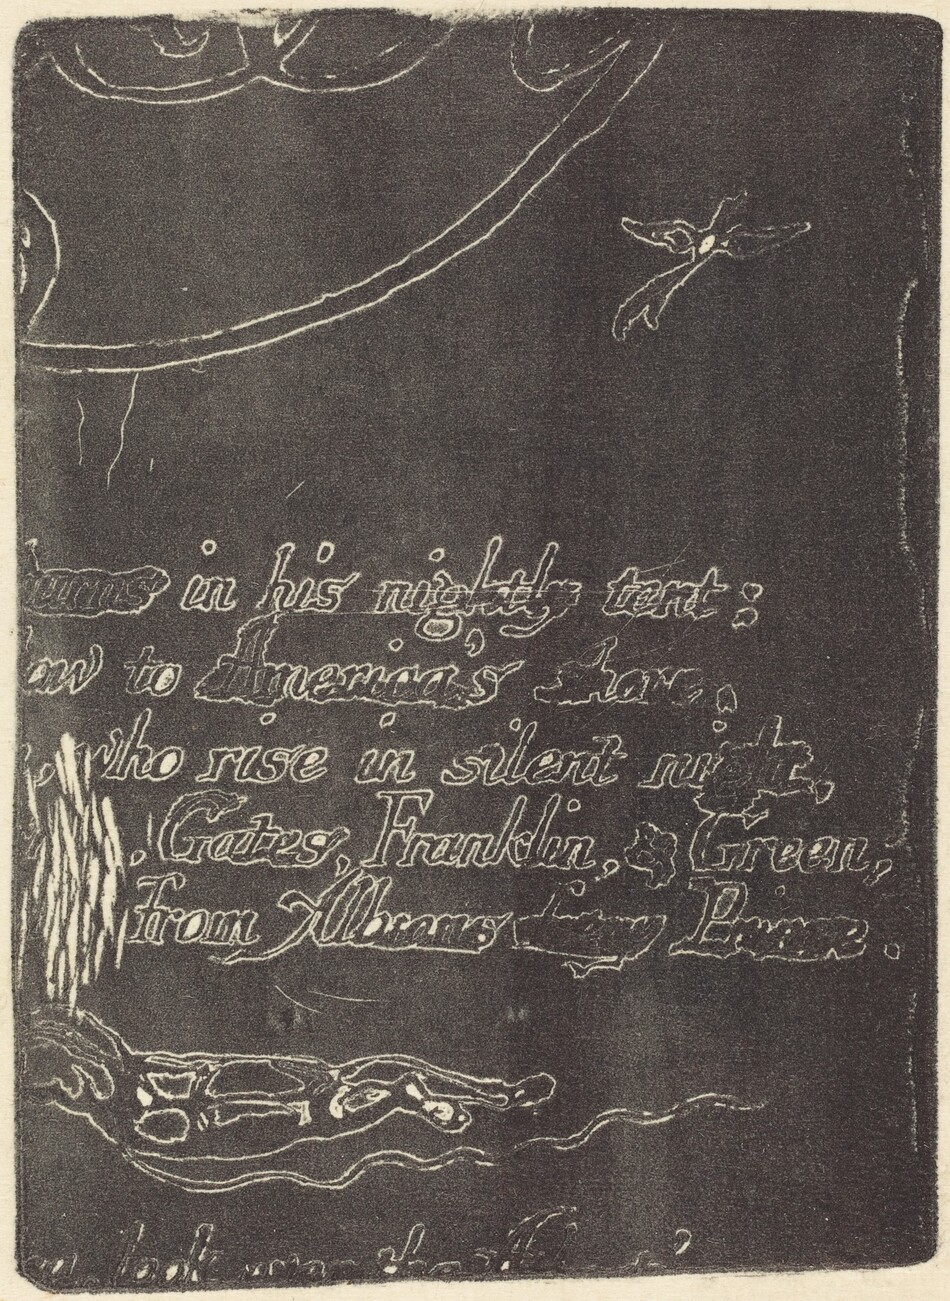 burns in his nightly tent:
low to America's shore,
, who rise in silent night,
, Gates, Franklin, & Green,
from Albions fiery Prince.
look over the Atlantic